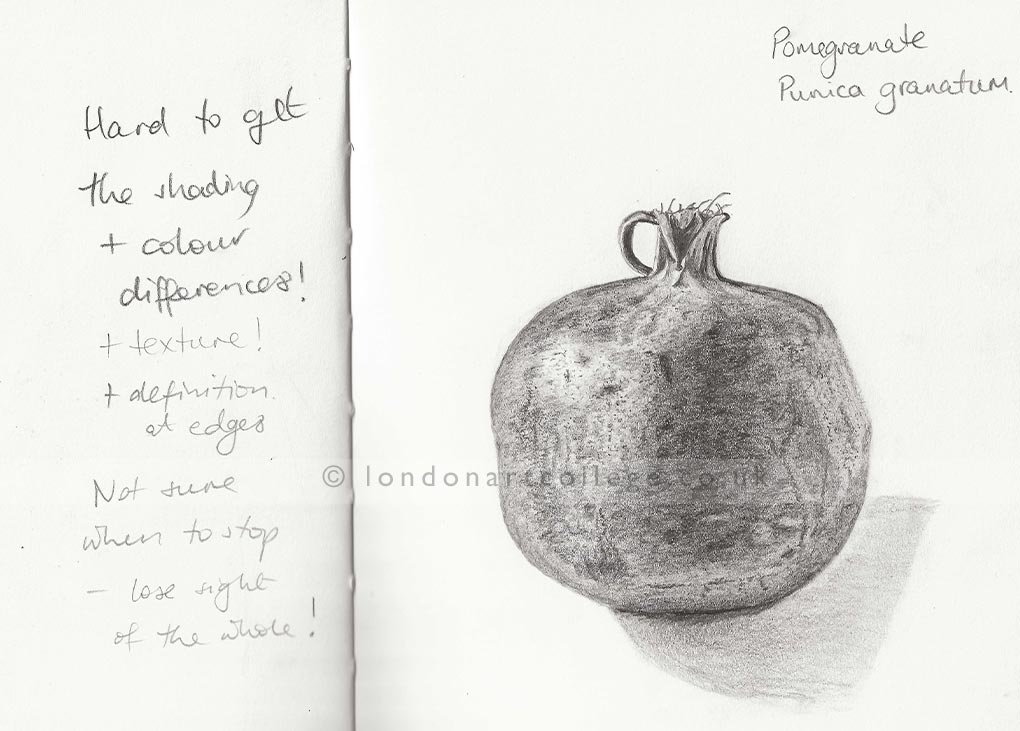 Hard to get
the shading
+ colour
differences!
+ texture!
+ definition
at edges
Not sure
when to stop
- lose sight
of the whole!
Pomegranate
Punica granatum.
© londonartcollege.co.uk